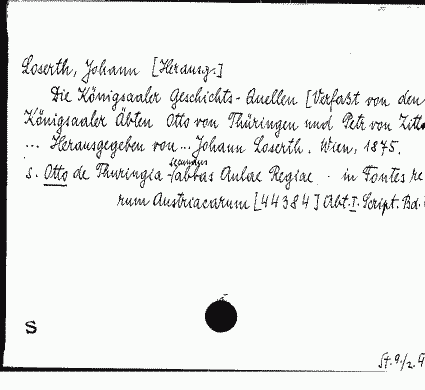 Loserth, Johann [Herausg.]
Die Königsaaler Geschichts-Quellen [Verfaßt von den
Königsaaler Äbten Otto von Thüringen und Petr von Zitta
... Herausgegeben von ... Johann Loserth. Wien, 1875.
secundus
s. Otto de Thuringia abbas Aulae Regiae - in Fontes re
rum Austriacarum [44384] Abt. I. Script. Bd.
S
St. 9./2.